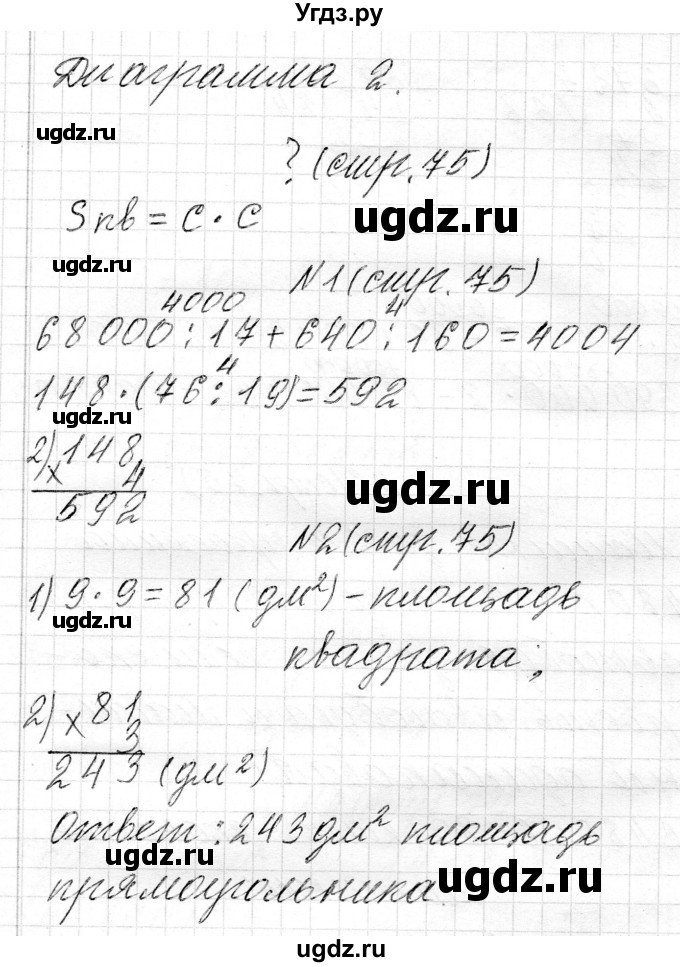 Угдз.ру
Диаграмма 2.
ugdz.ru
? (стр. 75)
ugdz.ru
Sкв = с · с
ugdz.ru
N1 (стр. 75)
4000 4
68 000 : 17 + 640 : 160 = 4004
4
148 · (76 : 19) = 592
ugdz.ru
2) 148
× 4
592
ugdz.ru
N2 (стр. 75)
1) 9 · 9 = 81 (дм²) – площадь
ugdz.ru
квадрата;
2) × 81
3
243 (дм²)
Ответ: 243 дм² площадь
ugdz.ru
прямоугольника.
ugdz.ru
ugdz.ru